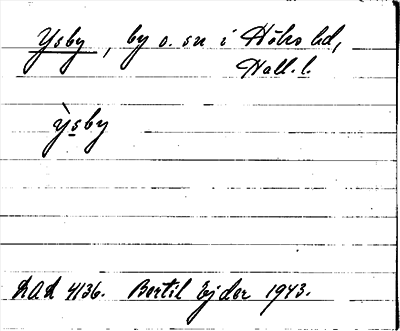 Ysby, by o. sn i Höks hd,
Hall. l.
ỳsby
LAL 4136. Bertil Ejder 1943.